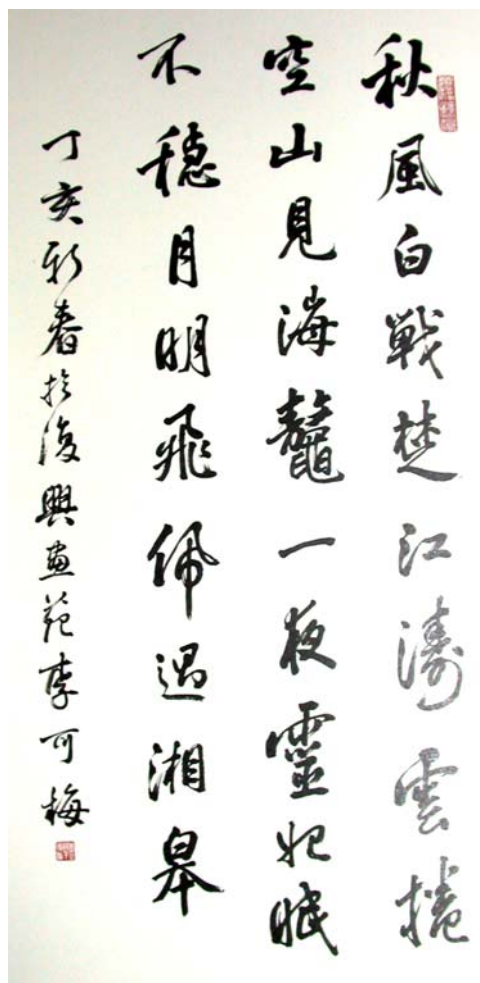 秋風白戰楚江濤雲捲
空山見海鼇一夜靈妃眠
不穩月明飛佩過湘皋
丁亥新春於復興畫苑李可梅